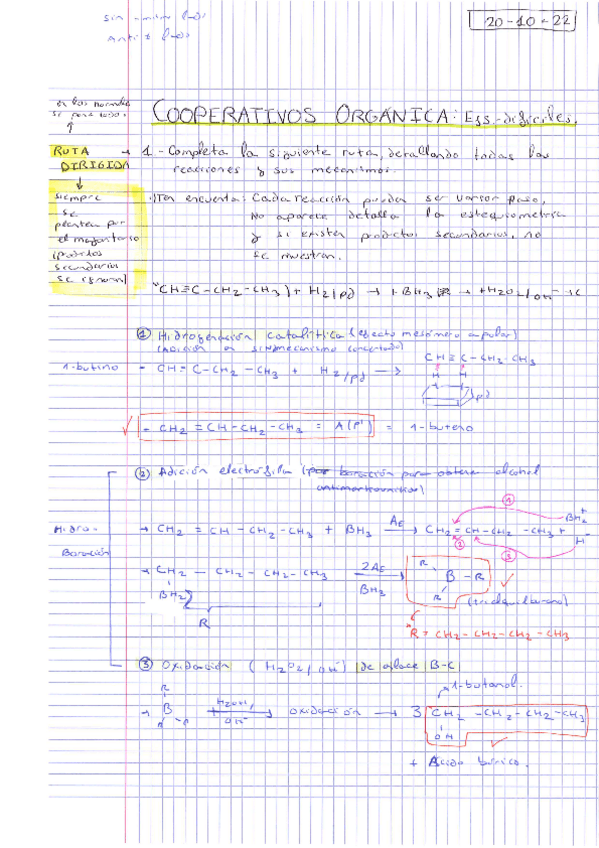 20-10-22
COOPERATIVOS ORGÁNICA: Ejs. difíciles.
RUTA DIRIGIDA → 1 - Completa la siguiente ruta, detallando todas las
reacciones y sus mecanismos.
siempre
se
plantea por
el mayoritario
(productos
secundarios
se ignoran)
Ten en cuenta: Cada reacción puede ser varios pasos,
No aparece detalla la estequiometría
y si existen productos secundarios, no
se muestran.
CH≡C-CH2-CH3 + H2/pd → +BH3 → +H2O2/OH-
① Hidrogenación catalítica (efecto mesómero apolar)
(Adición en sin/mecanismo concertado)
CH≡C-CH2-CH3
H H
/pd
1-butino - CH≡C-CH2-CH3 + H2/pd →
- CH2=CH-CH2-CH3 = A(P') = 1-buteno
② Adición electrófila (por boración para obtener alcohol
antimarkovnikov)
Hidro-
Boración
→ CH2=CH-CH2-CH3 + BH3 AE→ CH2=CH-CH2-CH3 +
BH2+
H-
① ② ③
→ CH2-CH2-CH2-CH3 2AE→ BH3
BH2
R
R B-R R
(trialquilborano)
*R = CH2-CH2-CH2-CH3
③ Oxidación (H2O2/OH-) de enlace B-C
1-butanol.
R B R R + H2O2/OH- → oxidación → 3 CH2-CH2-CH2-CH3
OH
+ Ácido bórico.